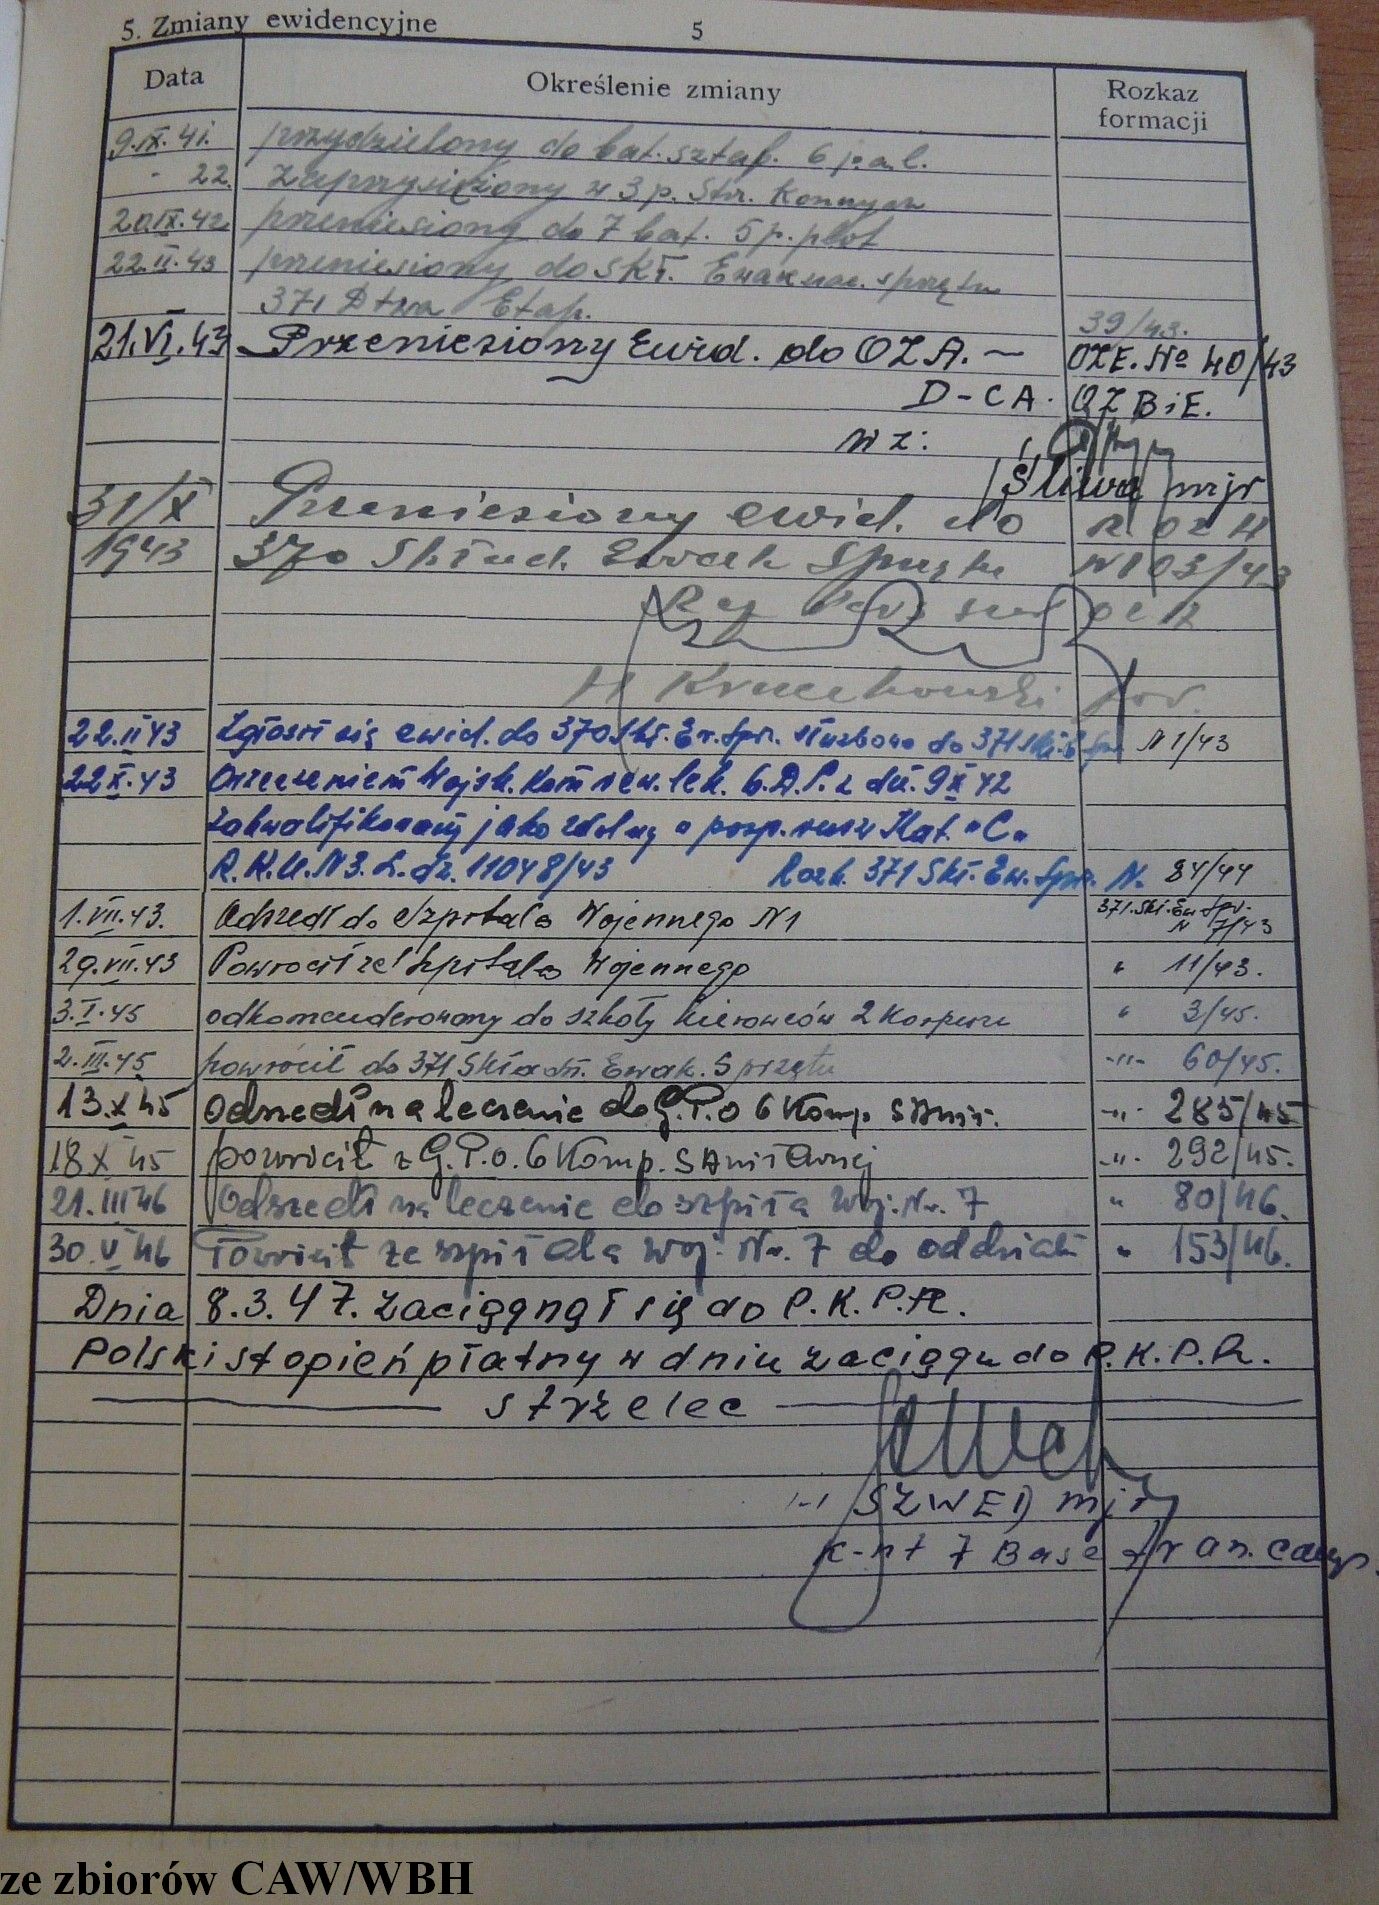 5. Zmiany ewidencyjne 5
Data Określenie zmiany Rozkaz formacji
9.IX.41. przydzielony do bat. sztab. 6 p.a.l.
" 22. Zaprzysiężony w 3 p. Str. Konnych
20.IX.42 przeniesiony do 7 bat. 5 p. plot
22.II.43 przeniesiony do Skł. Ewakuac. sprzętu
371 Dtwa Etap. 39/43.
21.VI.43 Przeniesiony Ewid. do OZA. — OZE. No 40/43
D-CA. OZBiE.
wz:
/Śliwa/ mjr
31/X Przeniesiony ewid. do R. OZA
1943 370 Skład. Ewak Sprzętu N 103/43
por.
22.II 43 Zgłosił się ewid. do 370 Skł. Ew. Spr. służbowo do 371 Skł. E Spr. N 1/43
22 X. 43 Orzeczeniem Wojsk. Kom rew. lek. 6. D.P. z dn. 9 X 42
zakwalifikowany jako zdolny o posp. rusz Kat. "C"
R.K.U. N 3. L. dz. 11048/43 Rozk. 371 Skł. Ew. Spr. N. 84/44
1.VII.43. Odszedł do Szpitala Wojennego N 1 371. Skł. Ew Spr. N 7/43
29.VII.43 Powrócił ze Szpitala Wojennego " 11/43.
3.I.45 odkomenderowany do szkoły kierowców 2 Korpusu " 3/45.
2.III.45 powrócił do 371 Składn. Ewak. Sprzętu -"- 60/45.
13.X 45 Odszedł na leczenie do G.P.O 6 Komp. SAnit. -"- 285/45
18 X 45 powrócił z G.P.O. 6 Komp. SAnitarnej -"- 292/45.
21.III 46 Odszedł na leczenie do szpita woj. Nr. 7 " 80/46.
30.V 46 Powrócił ze szpitala woj. Nr. 7 do oddziału " 153/46.
Dnia 8.3.47. zaciągnął się do P.K.P.R.
Polski stopień płatny w dniu zaciągu do P.K.P.R.
— strzelec —
/-/ SZWED mjr
K-nt 7 Base Tran. Camp.
ze zbiorów CAW/WBH